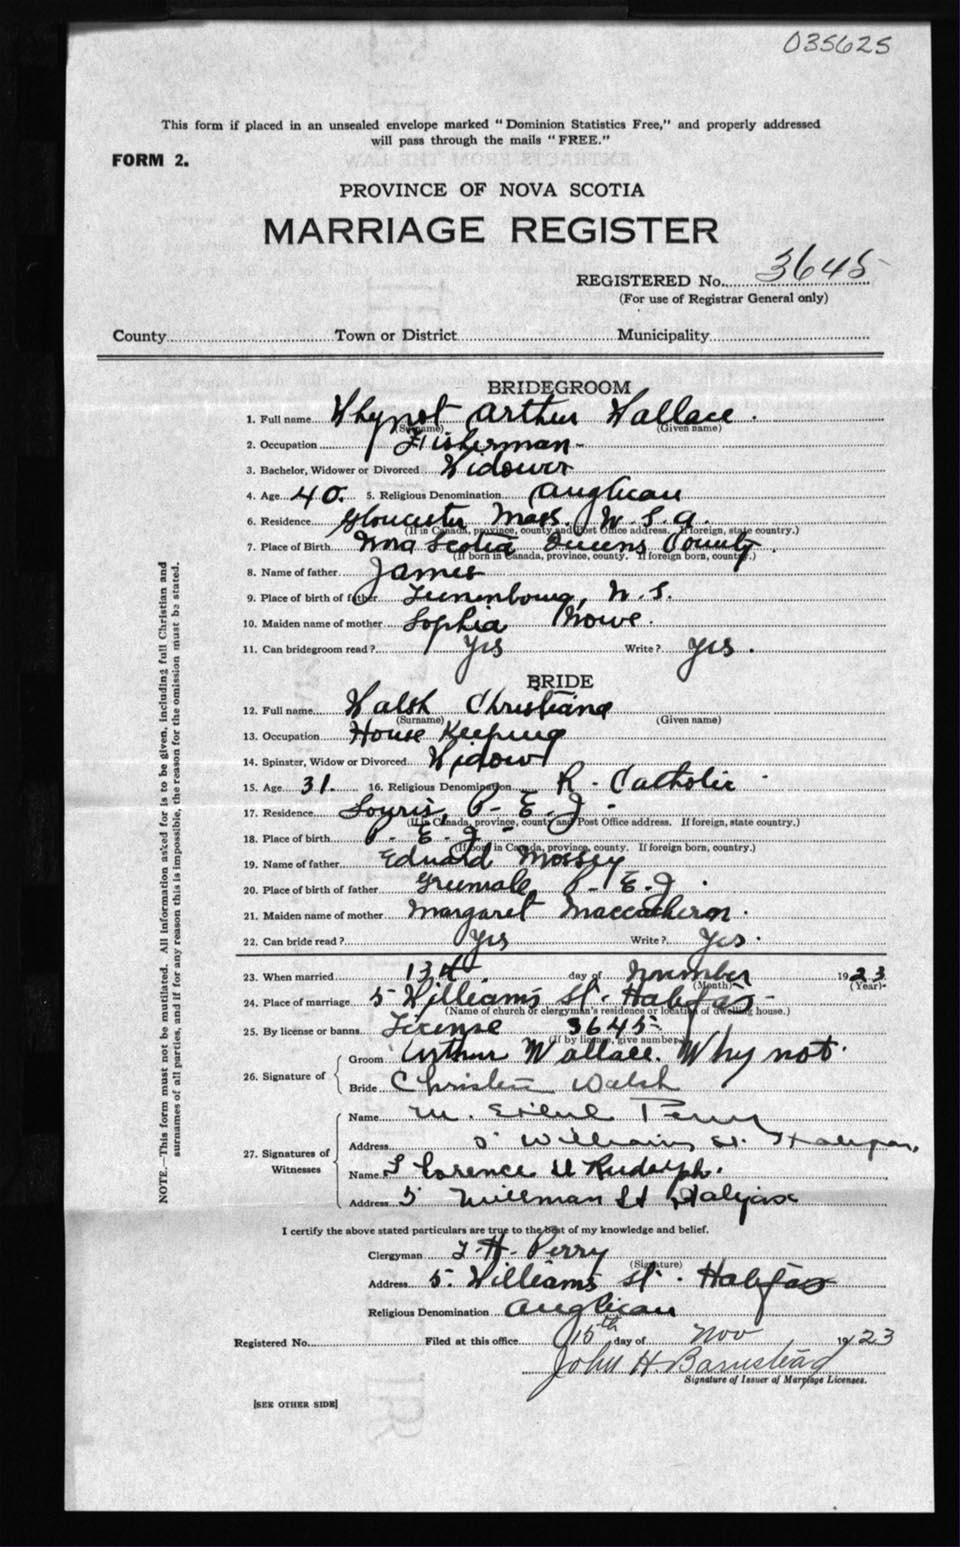 035625
This form if placed in an unsealed envelope marked "Dominion Statistics Free," and properly addressed
will pass through the mails "FREE."
FORM 2.
PROVINCE OF NOVA SCOTIA
MARRIAGE REGISTER
REGISTERED No. 3645
(For use of Registrar General only)
County Town or District Municipality
BRIDEGROOM
1. Full name Whynot Arthur Wallace.
(Surname) (Given name)
2. Occupation Fisherman
3. Bachelor, Widower or Divorced Widower
4. Age 40. 5. Religious Denomination Anglican
6. Residence Gloucester Mass. U.S.A.
(If in Canada, province, county and Post Office address. If foreign, state country.)
7. Place of Birth Nova Scotia Queens County.
(If born in Canada, province, county. If foreign born, country.)
8. Name of father James
9. Place of birth of father Lunenbourg, N.S.
10. Maiden name of mother Sophia Mowe.
11. Can bridegroom read? Yes Write? Yes.
BRIDE
12. Full name Walsh Christiana
(Surname) (Given name)
13. Occupation House Keeping
14. Spinster, Widow or Divorced Widow
15. Age 31. 16. Religious Denomination R. Catholic
17. Residence Souris, P.E.I.
(If in Canada, province, county and Post Office address. If foreign, state country.)
18. Place of birth P.E.I.
(If born in Canada, province, county. If foreign born, country.)
19. Name of father Edward Mossey
20. Place of birth of father P.E.I.
21. Maiden name of mother Margaret
22. Can bride read? Yes Write? Yes.
23. When married 13th day of November 1923
(Month) (Year)
24. Place of marriage 5 Williams St. Halifax
(Name of church or clergyman's residence or location of dwelling house.)
25. By license or banns License 3645
(If by license, give number)
26. Signature of Groom Arthur Wallace. Whynot.
Bride Christin Walsh
27. Signatures of Witnesses Name M. Perry
Address 5 Williams St. Halifax,
Name Clarence U Rudolph.
Address 5 Willman St Halifax
I certify the above stated particulars are true to the best of my knowledge and belief.
Clergyman T. H. Perry
(Signature)
Address 5. Williams St. Halifax
Religious Denomination Anglican
Registered No. Filed at this office 15th day of Nov 1923
John H. Barnstead
Signature of Issuer of Marriage Licenses.
[SEE OTHER SIDE]
NOTE.—This form must not be mutilated. All information asked for is to be given, including full Christian and
surnames of all parties, and if for any reason this is impossible, the reason for the omission must be stated.